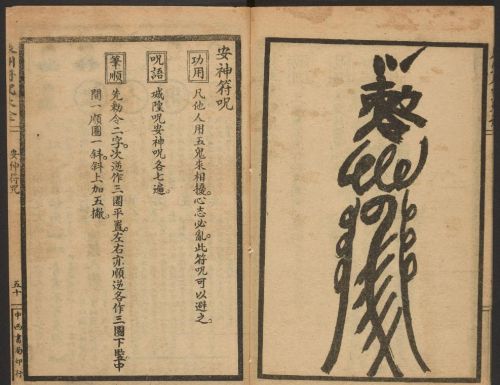 安神符呪
功用
凡他人用五鬼來相擾。心志必亂。此符呪可以避之。
呪語
城隍呪安神呪各七遍。
筆順
先勅令二字。次逆作三圈平置。左右亦順逆各作三圈下豎。中
間一順圈一斜。斜上加五撇。
安神符呪
五十
中西書局印行